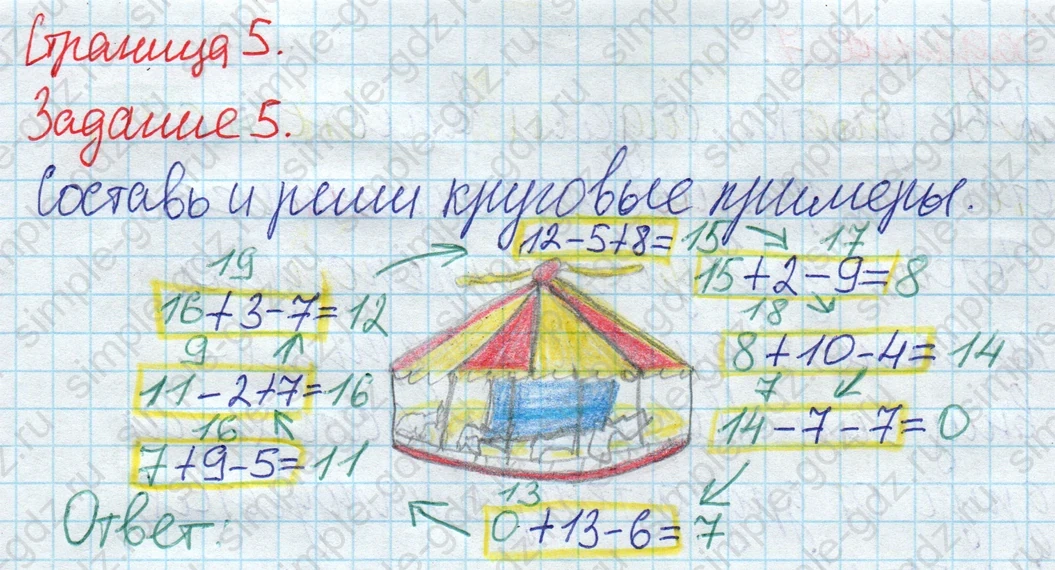 Страница 5.
Задание 5.
Составь и реши круговые примеры.
12-5+8=15
17
15+2-9=8
18
8+10-4=14
7
14-7-7=0
13
0+13-6=7
16
7+9-5=11
9
11-2+7=16
19
16+3-7=12
Ответ:
simple-gdz.ru